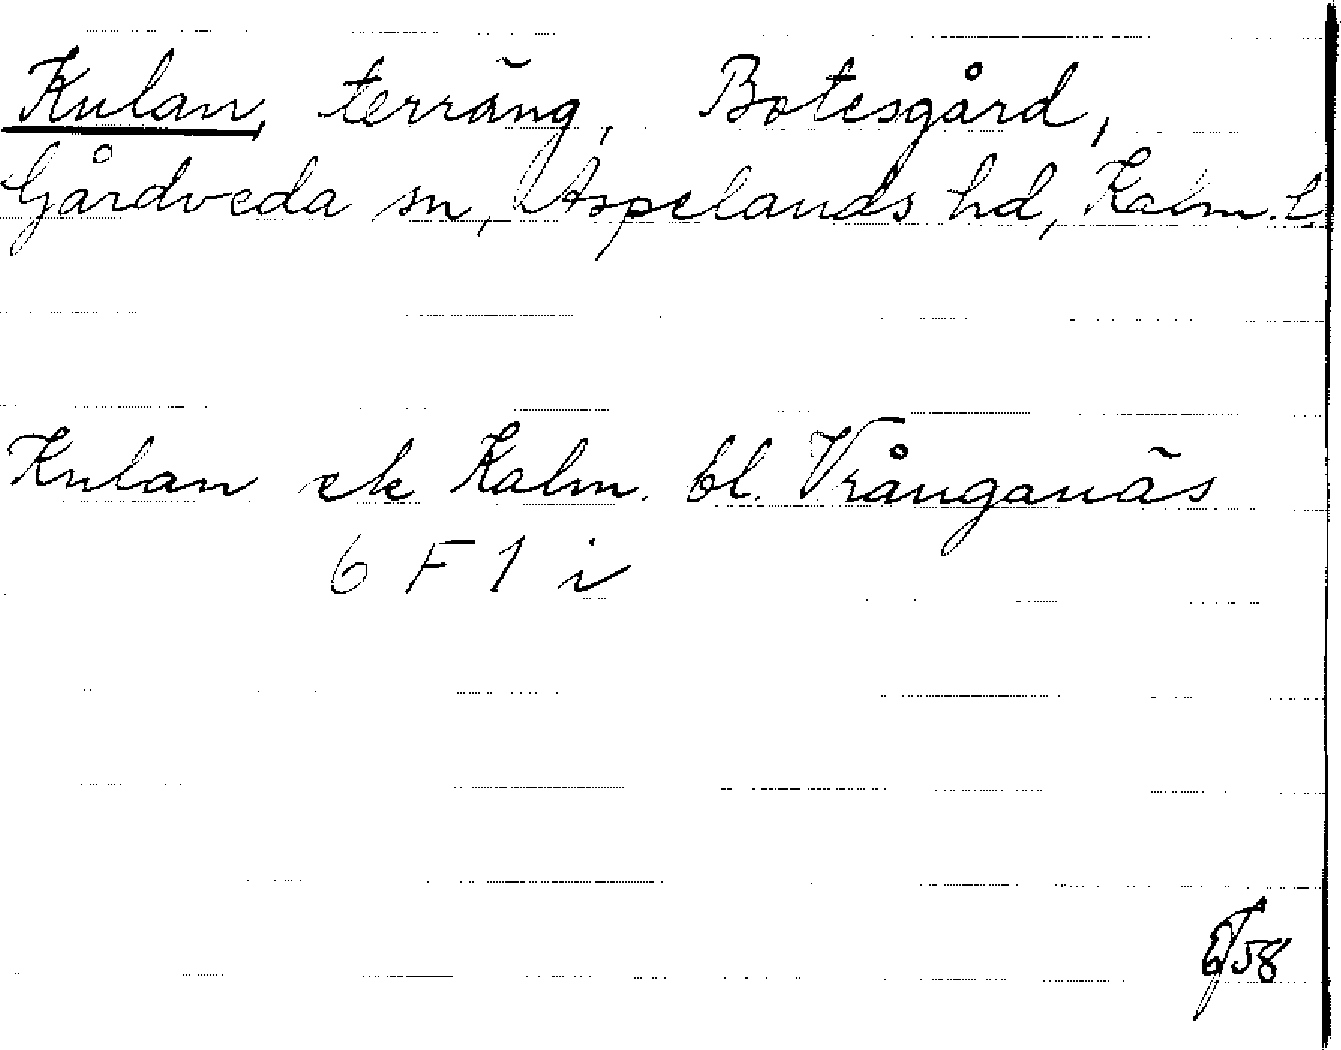 Kulan, terräng, Botesgård,
Gårdveda sn, Aspelands hd, Kalm. l
Kulan ek Kalm. bl. Vrånganäs
6 F 1 i
58